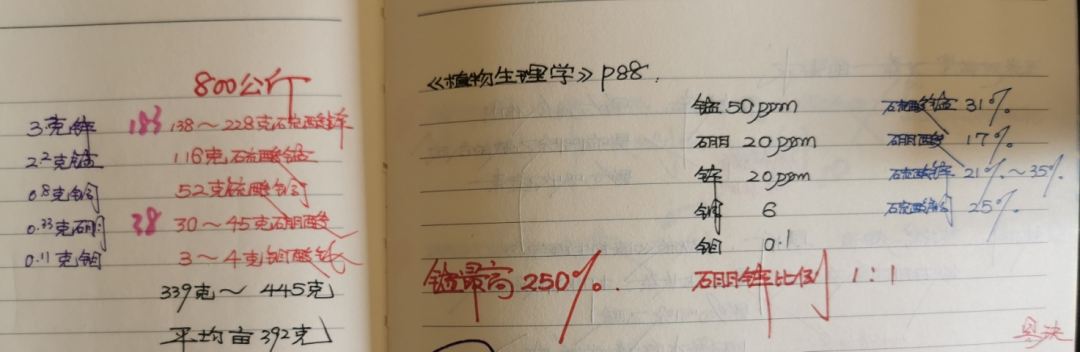 800公斤
3克锌 183 138～228克硫酸锌
2.2克锰 116克硫酸锰
0.8克铜 52克硫酸铜
0.33克硼 38 30～45克硼酸
0.11克钼 3～4克钼酸钠
339克～445克
平均亩392克
《植物生理学》P88.
锰50ppm 硫酸锰31%
硼20ppm 硼酸17%
锌20ppm 硫酸锌21%～35%
铜6 硫酸铜25%
钼0.1
锰最高250%. 硼锌比例1:1